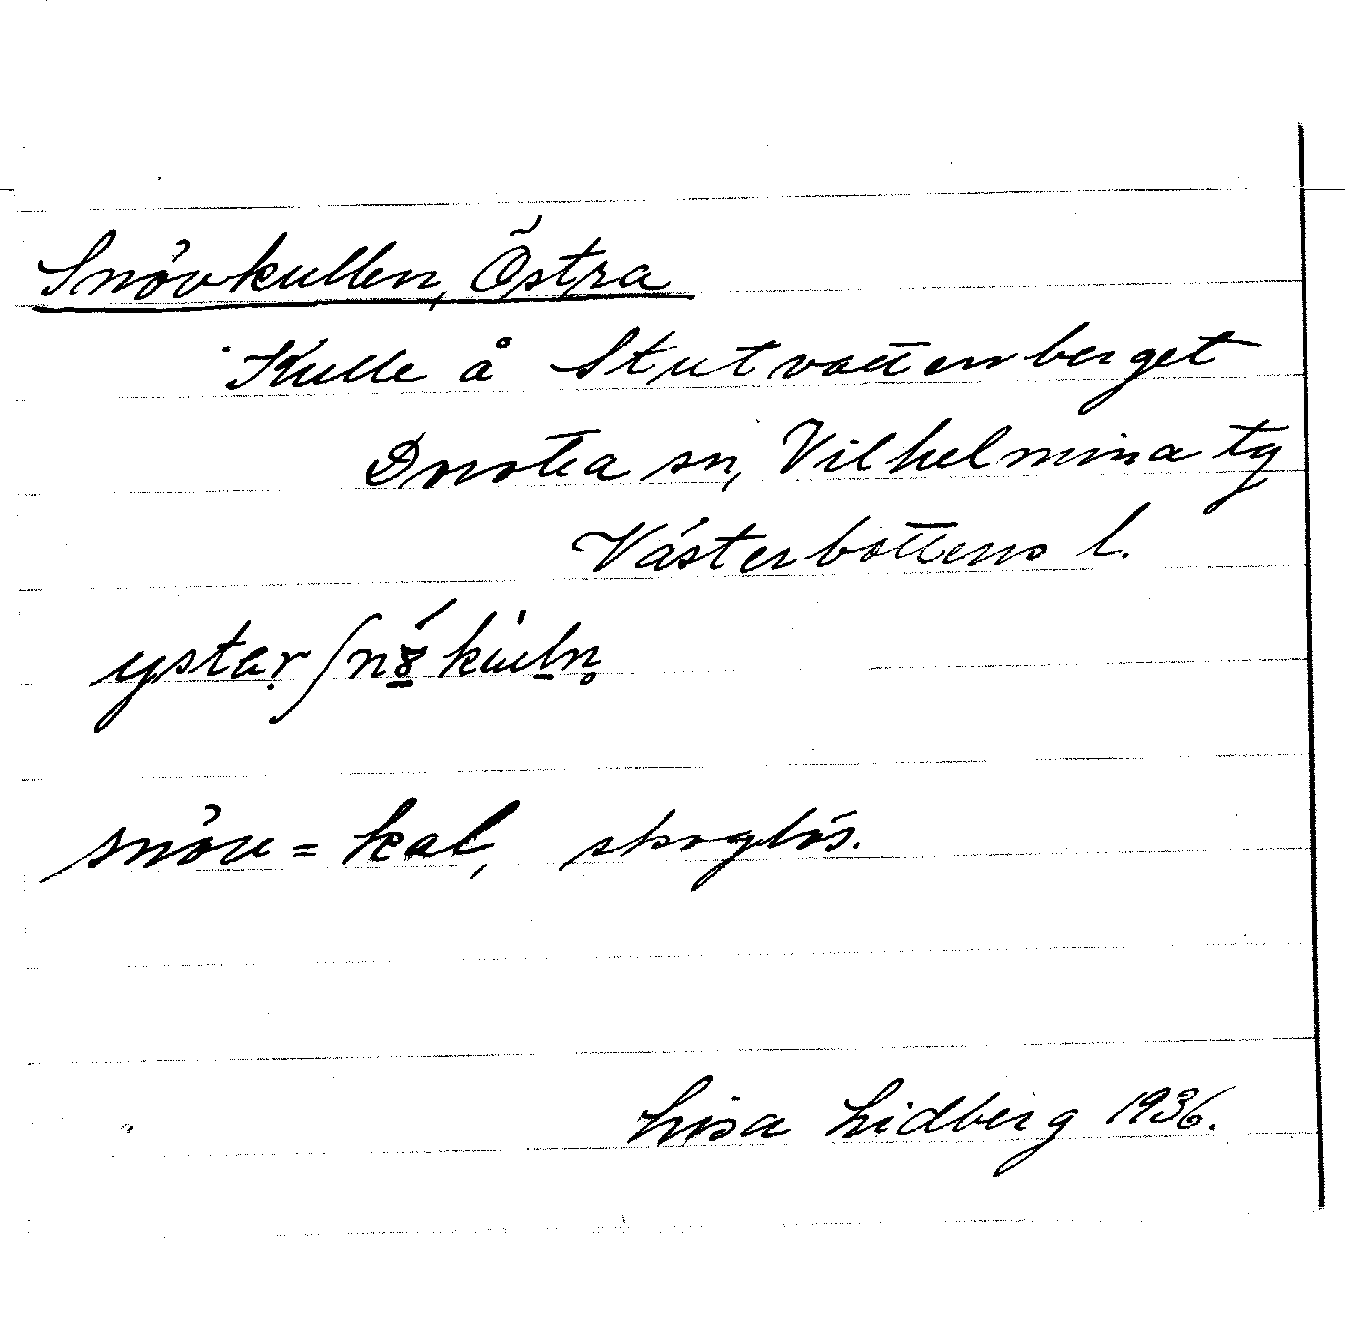 Snövkullen, Östra
Kulle å Stutvattenberget
Dorotea sn, Vilhelmina tg
Västerbottens l.
snöv = kal, skoglös.
Lisa Lidberg 1936.